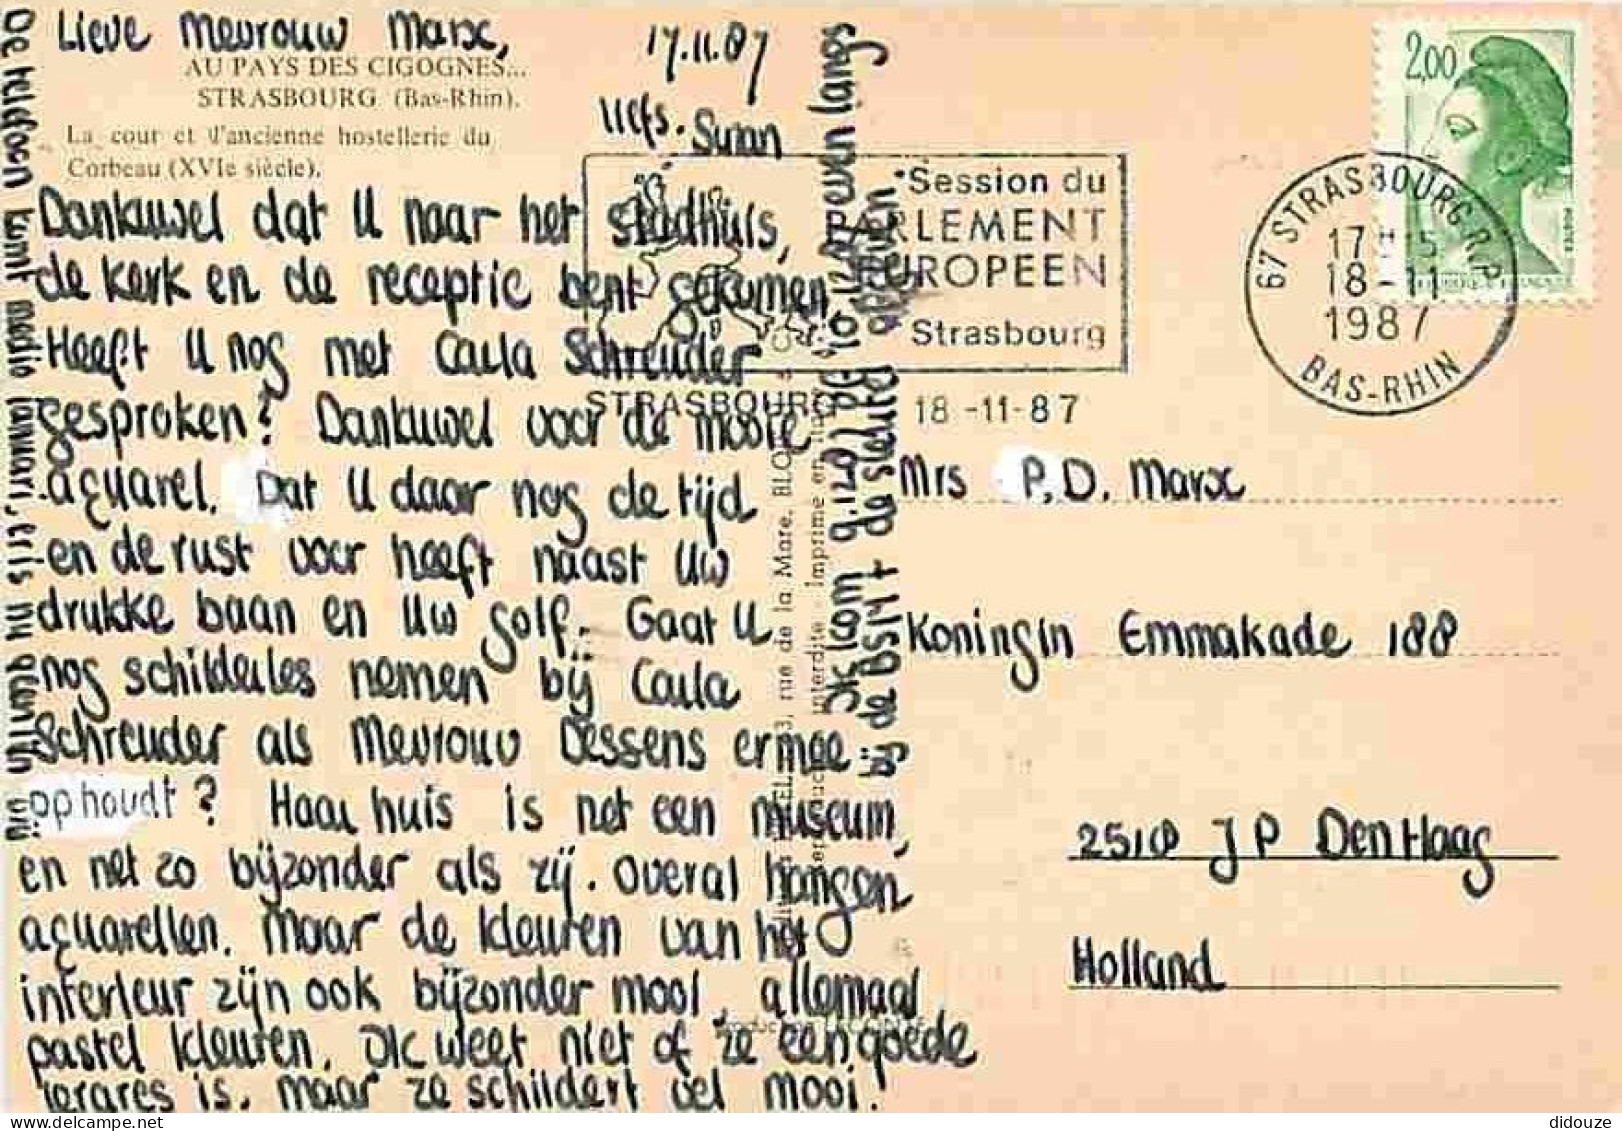 Lieve Mevrouw Marx,
17.11.87
AU PAYS DES CIGOGNES...
STRASBOURG (Bas-Rhin).
La cour et l'ancienne hostellerie du
Corbeau (XVIe siècle).
liefs. Susan
Dankuwel dat U naar het stadhuis,
de kerk en de receptie bent gekomen
Heeft U nog met Carla Schreuder
gesproken? Dankuwel voor de mooie
aquarel. Dat U daar nog de tijd
en de rust voor heeft naast Uw
drukke baan en Uw golf. Gaat U
nog schilderles nemen bij Carla
Schreuder als Mevrouw Dessens ermee
op houdt? Haar huis is net een museum,
en net zo bijzonder als zij. Overal hangen
aquarellen. Maar de kleuren van het
interieur zijn ook bijzonder mooi, allemaal
pastel kleuren. Ik weet niet of ze een goede
lerares is, maar ze schildert wel mooi!
De telefoon komt medio januari, er is nu
Ik kom 9.12 even langs
bij de
2,00
POSTES
Session du
PARLEMENT
EUROPEEN
Strasbourg
STRASBOURG
18-11-87
67 STRASBOURG R.P.
18-11
1987
BAS-RHIN
rue de la Mare,
interdite - Imprimé en
Mrs P.D. Marx
Koningin Emmakade 188
2518 JP Den Haag
Holland
didouze